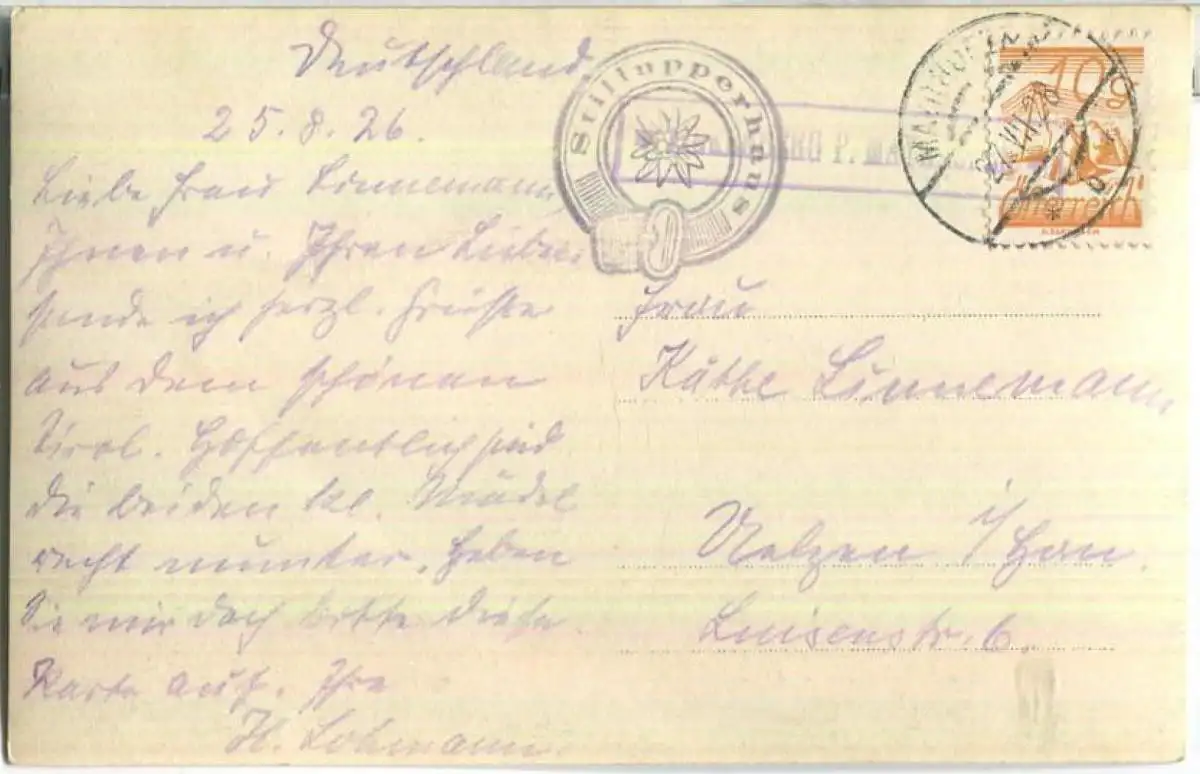 Deutschland.
25.8.26.
Liebe Frau Linnemann,
Ihnen u. Ihren Lieben
sende ich herzl. Grüsse
aus dem schönen
Tirol. Hoffentlich sind
die beiden kl. Mädel
recht munter. Heben
Sie mir doch bitte diese
Karte auf. Ihre
H. Lohmann.
Stillupperhaus
P. MA
MAYRHOFEN
27.VIII.26
* b
10g
Österreich
Frau
Käthe Linnemann
Uelzen i/Han.
Luisenstr. 6.